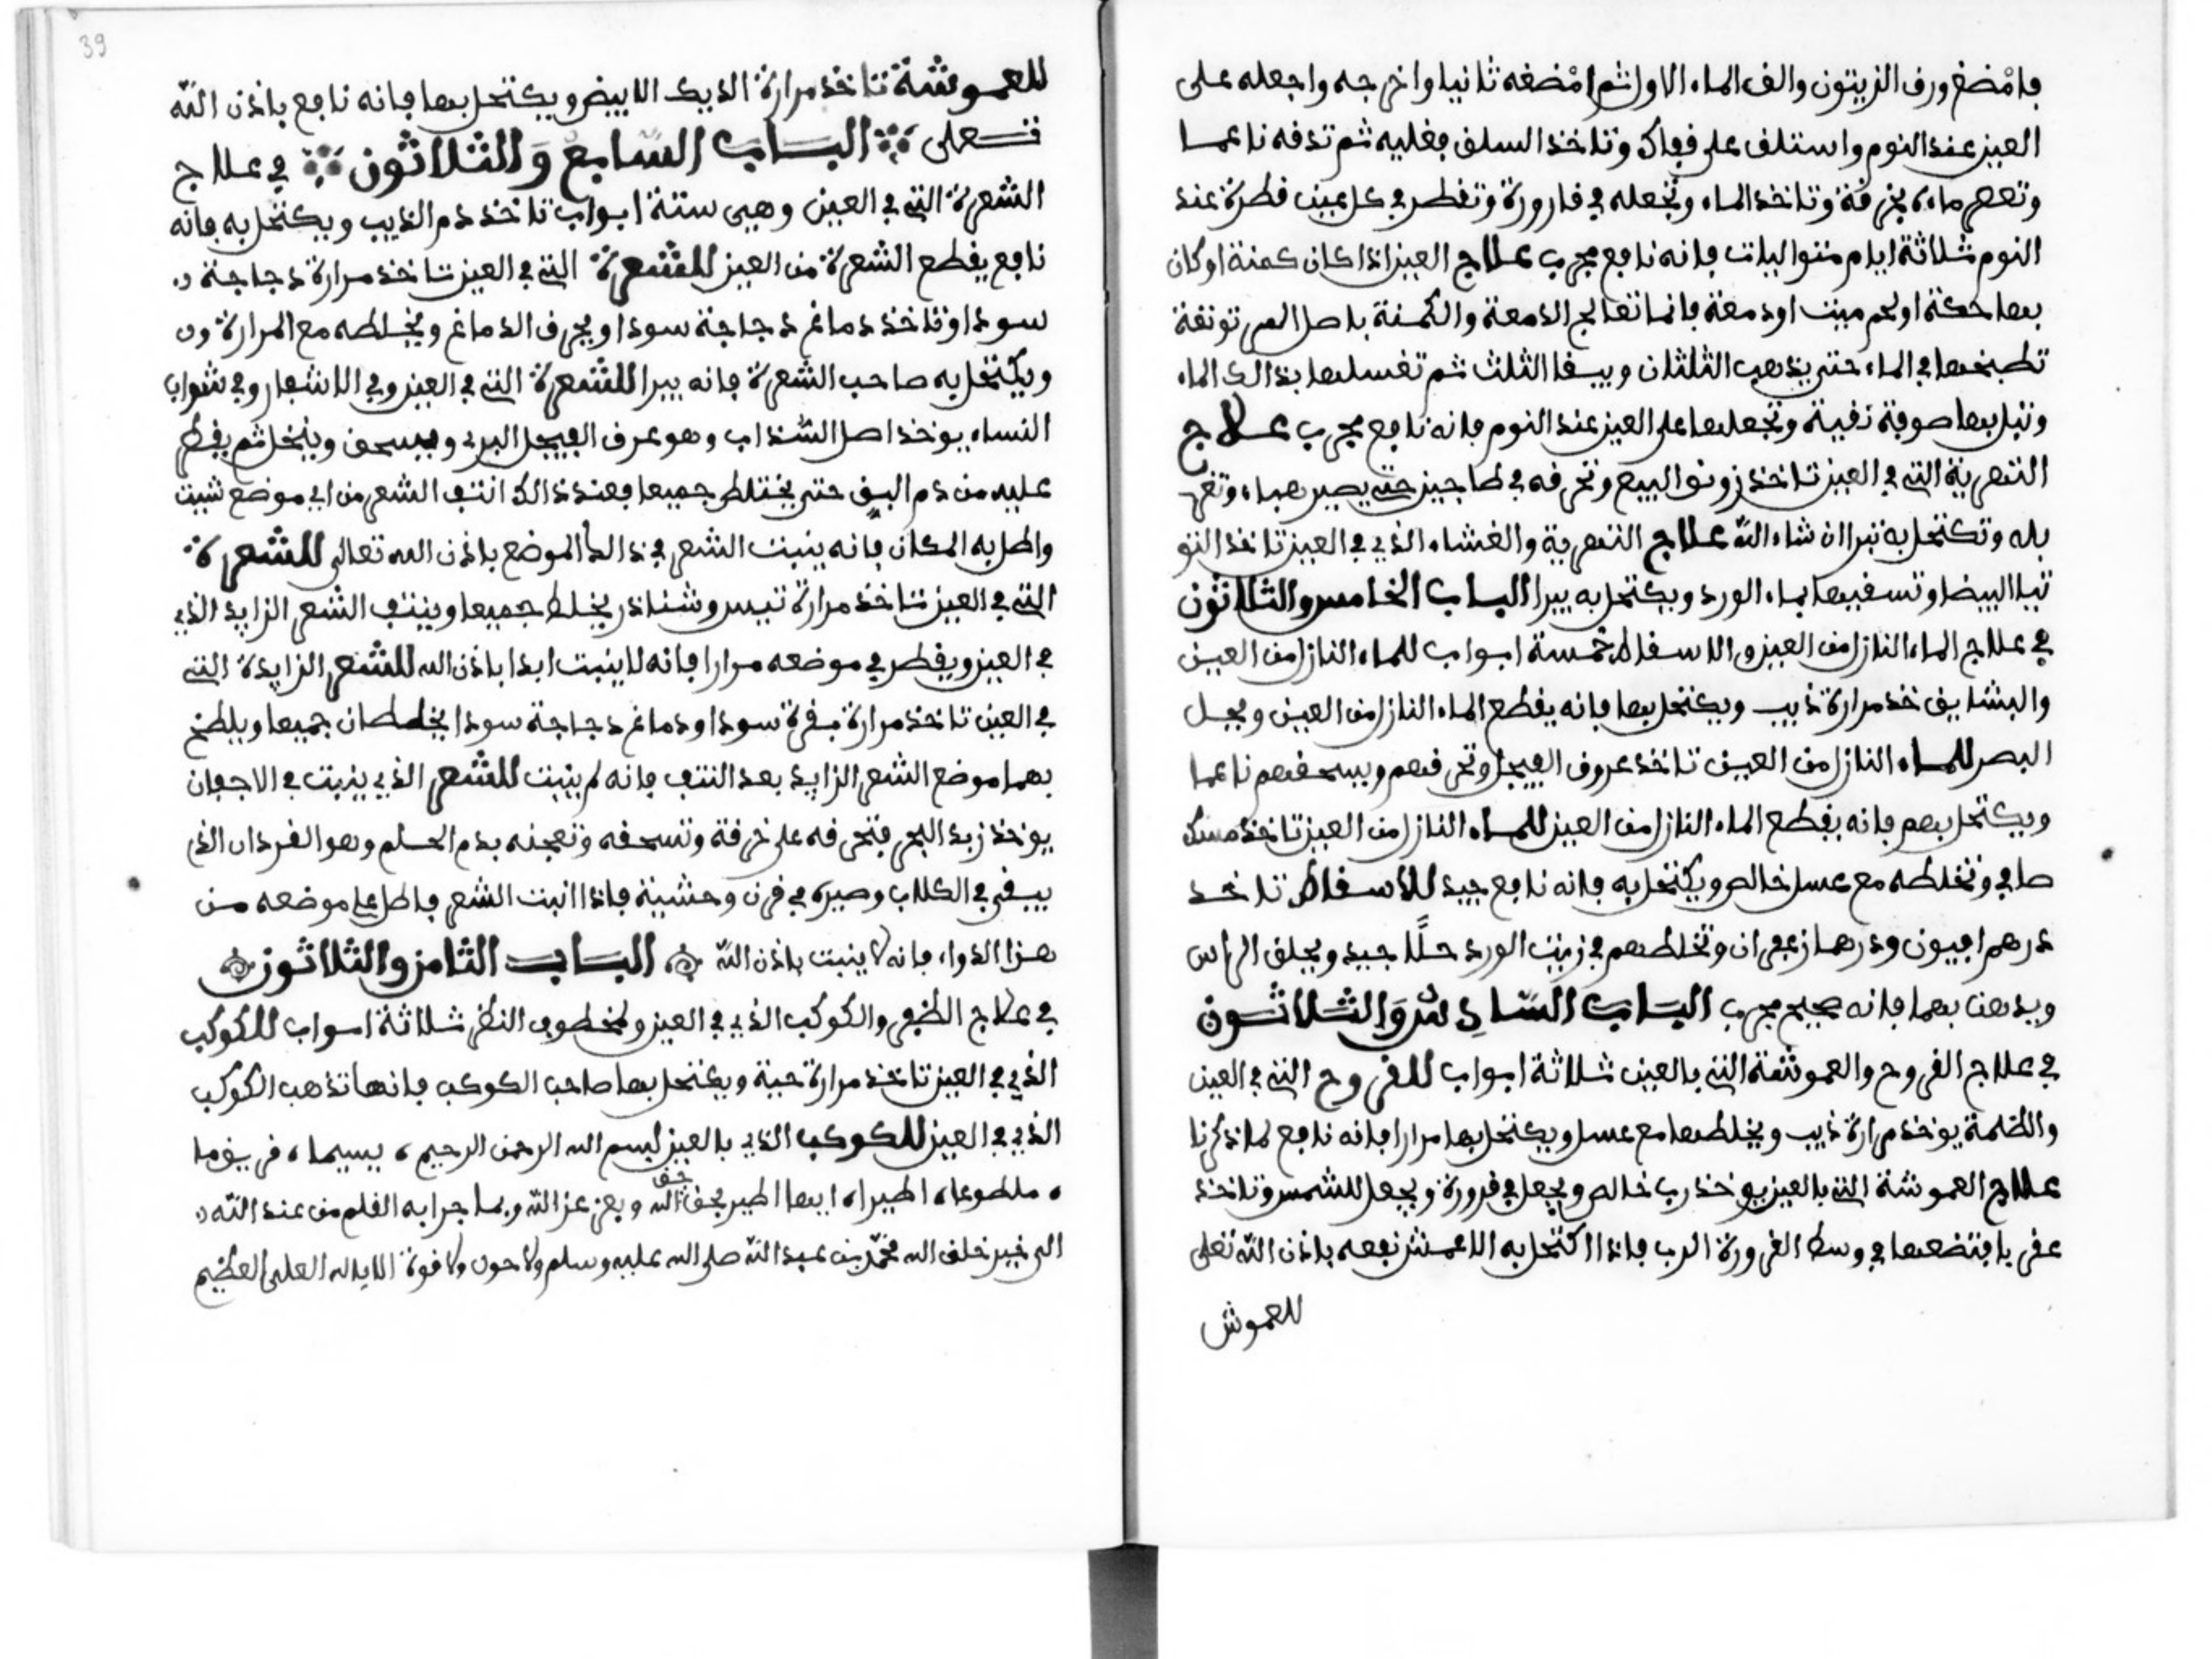 فامضغ ورق الزيتون والق الماء الاول ثم امضغه ثانيا واخرجه واجعله على
العين عند النوم واستلق على قفاك وتاخذ السلق فغليه ثم تدقه ناعما
وتعصر ماءه بخرقة وتاخذ الماء وتجعله في قارورة وتقطر في كل عين قطرة عند
النوم ثلاثة ايام متواليات فانه نافع مجرب علاج العين اذا كان كمنة او كان
بها حكة او لحم ميت او دمعة فانما تعالج الدمعة والكمنة باصل
تطبخها في الماء حتى يذهب الثلثان ويبقا الثلث ثم تغسلها بذالك الماء
وتبل بها صوفة نقية وتجعلها على العين عند النوم فانه نافع مجرب علاج
التي في العين تاخذ وتحرقه في طاجين حتى يصير هباء
به وتكتحل به تبرا ان شاء الله علاج والغشاء الذي في العين تاخذ
البيضا وتسقيها بماء الورد ويكتحل به يبرا الباب الخامس والثلاثون
في علاج الماء النازل من العين والاسقاط خمسة ابواب للماء النازل من العين
خذ مرارة ذيب ويكتحل بها فانه يقطع الماء النازل من العين
البصر للماء النازل من العين تاخذ عروق الفيجل وتحرقهم ويسحقهم ناعما
ويكتحل بهم فانه يقطع الماء النازل من العين للماء النازل من العين تاخذ مسك
صافي وتخلطه مع عسل خالص ويكتحل به فانه نافع جيد للاسقاط تاخذ
درهم افيون ودرهما زعفران وتخلطهم في زيت الورد حلًا جيد ويحلق الراس
ويدهن بهما فانه صحيح مجرب الباب السادس والثلاثون
في علاج القروح والعموشة التي بالعين ثلاثة ابواب للقروح التي في العين
والظلمة يوخذ مرارة ذيب ويخلطها مع عسل ويكتحل بها مرارا فانه نافع لما ذكرنا
علاج العموشة التي بالعين يوخذ رب خالص ويجعل في قرورة ويجعل للشمس وتاخذ
فتضعها في وسط القرورة الرب فاذا اكتحل به الاعمش نفعه باذن الله تعلى
للعموش
للعموشة تاخذ مرارة الديك الابيض ويكتحل بها فانه نافع باذن الله
تعلى الباب السابع والثلاثون في علاج
الشعرة التي في العين وهي ستة ابواب تاخذ دم الذيب ويكتحل به فانه
نافع يقطع الشعرة من العين للشعرة التي في العين تاخذ مرارة دجاجة
سودا وتاخذ دماغ دجاجة سودا ويحرق الدماغ ويخلطه مع المرارة
ويكتحل به صاحب الشعرة فانه يبرا للشعرة التي في العين وفي الاشفار وفي شواب
النساء يوخذ اصل السذاب وهو عرق الفيجل البري ويسحق وينخل ثم يقطر
عليه من دم البق حتى يختلط جميعا فعند ذالك انتف الشعر من اي موضع شيت
واطل به المكان فانه ينبت الشعر في ذالك الموضع باذن الله تعالى للشعرة
التي في العين تاخذ مرارة تيس يخلط جميعا وينتف الشعر الزايد الذي
في العين ويقطر في موضعه مرارا فانه لا ينبت ابدا باذن الله للشعر الزايدة التي
في العين تاخذ مرارة بقرة سودا ودماغ دجاجة سودا يخلطان جميعا ويلطخ
بهما موضع الشعر الزايد بعد النتف فانه لم ينبت للشعر الذي ينبت في الاجفان
يوخذ زبد البحر فتحرقه على خرقة وتسحقه وتعجنه بدم الحلم وهو القردان الذي
يبقى في الكلاب وصيره في قرن وحشية فاذا انبت الشعر فاطل على موضعه من
هذا الدواء فانه لا ينبت باذن الله الباب الثامن والثلاثون
في علاج الظفر والكوكب الذي في العين ولخطوف النظر ثلاثة ابواب للكوكب
الذي في العين تاخذ مرارة حية ويكتحل بها صاحب الكوكب فانها تذهب الكوكب
الذي في العين للكوكب الذي بالعين بسم الله الرحمن الرحيم
ايها الطير بحق حق الله وبعز عز الله وبما جرا به القلم من عند الله
الى خير خلق الله محمد بن عبد الله صلى الله عليه وسلم ولا حول ولا قوة الا بالله العلي العظيم
39